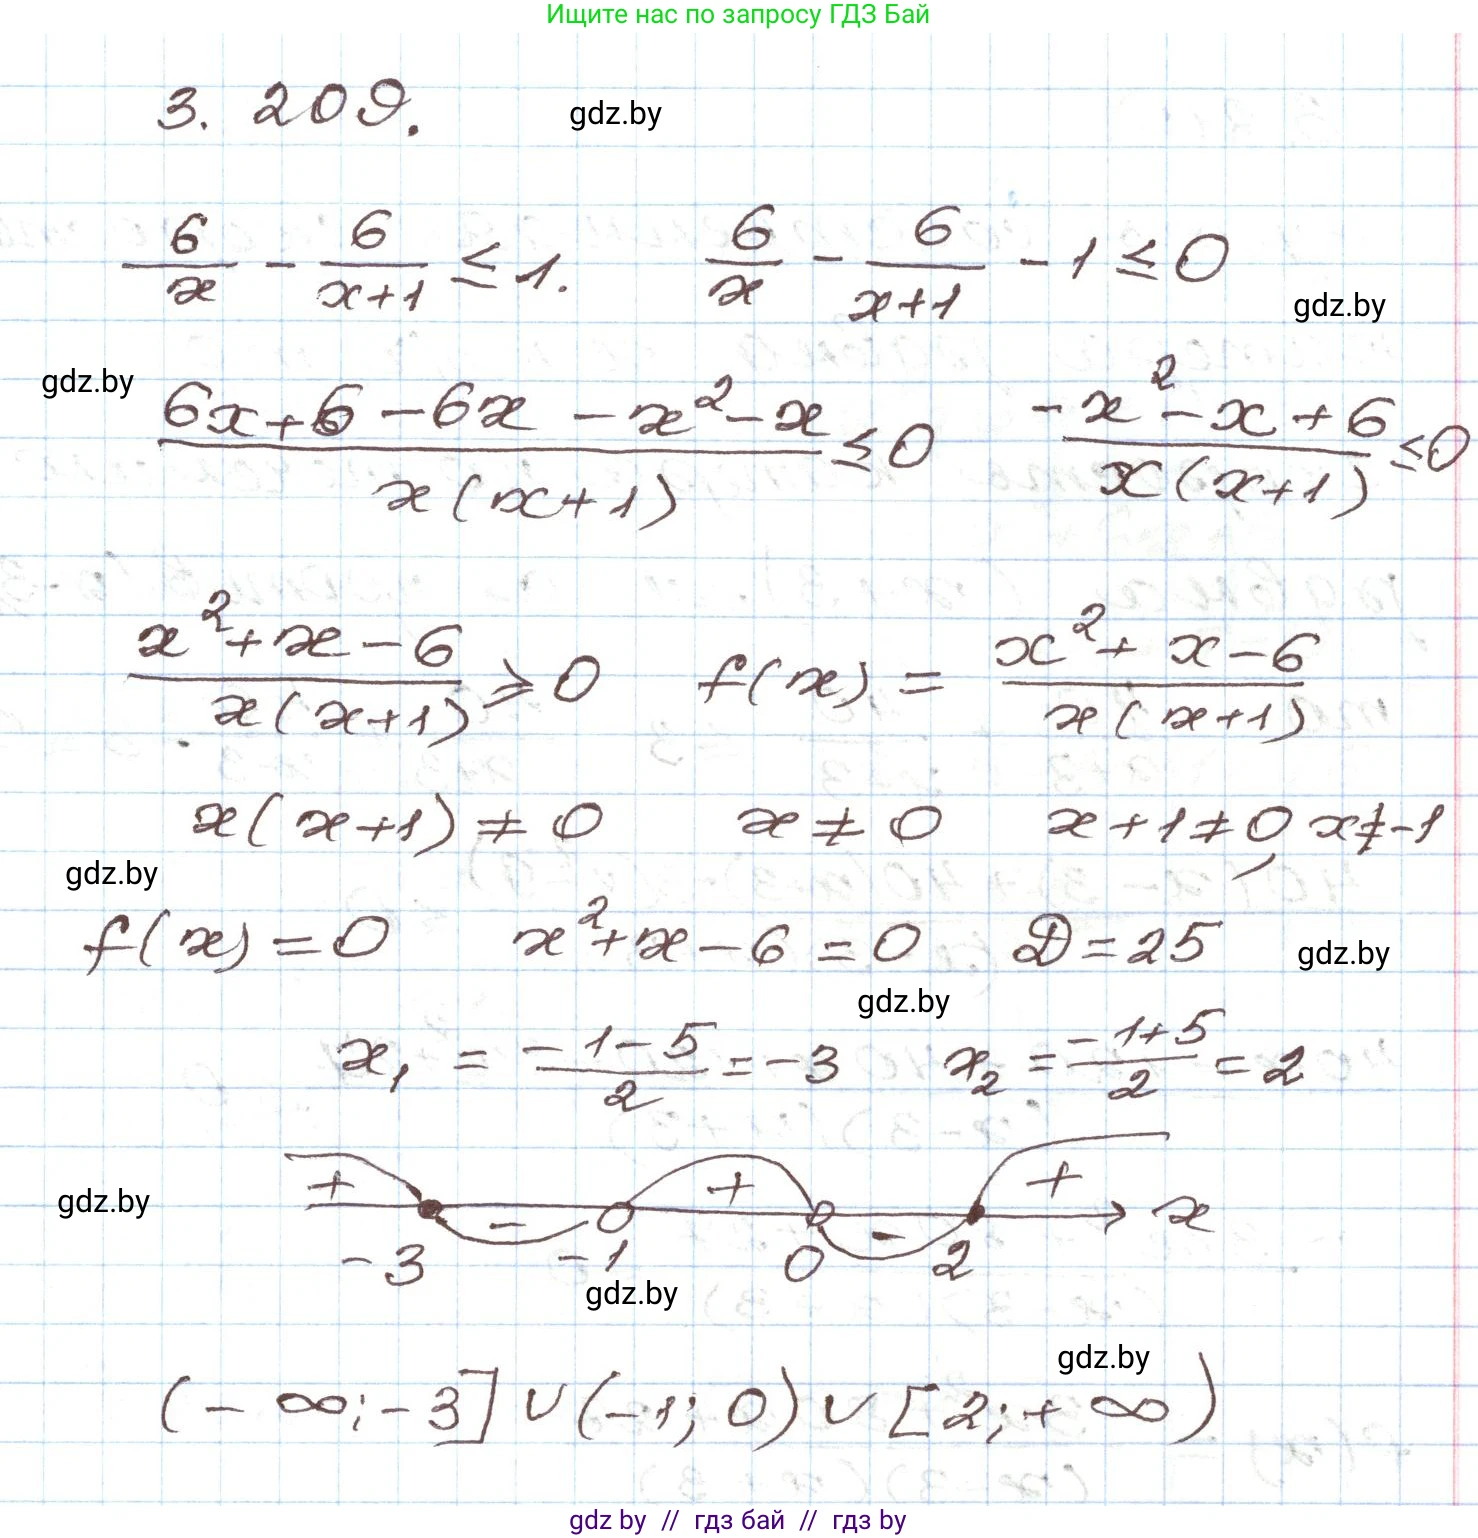 Ищите нас по запросу ГДЗ Бай
3. 209.
gdz.by
6/x - 6/(x+1) ≤ 1. 6/x - 6/(x+1) - 1 ≤ 0
gdz.by
gdz.by
(6x+6-6x-x²-x)/(x(x+1)) ≤ 0 (-x²-x+6)/(x(x+1)) ≤ 0
(x²+x-6)/(x(x+1)) ⩾ 0 f(x) = (x²+x-6)/(x(x+1))
x(x+1) ≠ 0 x ≠ 0 x+1≠0, x≠-1
gdz.by
f(x)=0 x²+x-6=0 D=25
gdz.by
gdz.by
x₁ = (-1-5)/2 = -3 x₂ = (-1+5)/2 = 2
+ - + - + x
gdz.by
-3 -1 0 2
gdz.by
gdz.by
(-∞;-3]∪(-1;0)∪[2;+∞)
gdz by // гдз бай // gdz by